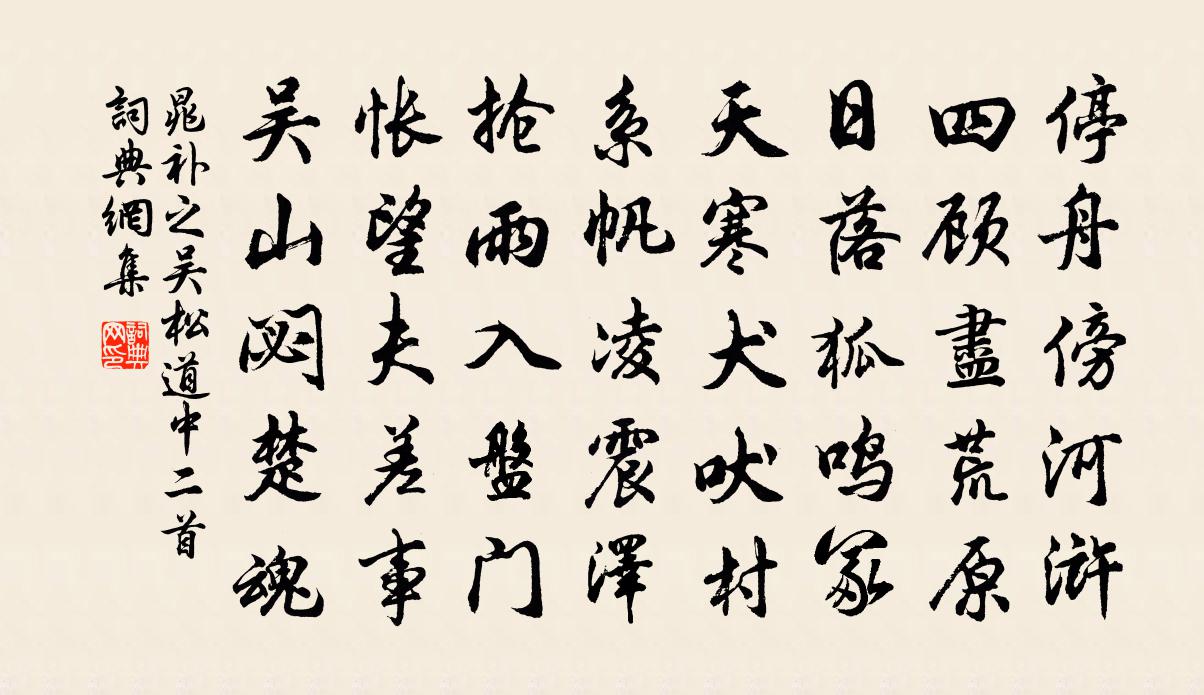 停舟傍河滸
四顾盡荒原
日落狐鸣冢
天寒犬吠村
系帆凌震澤
抢雨入盤门
怅望夫差事
吴山閟楚魂
晁补之吴松道中二首
詞典網集
詞典网印